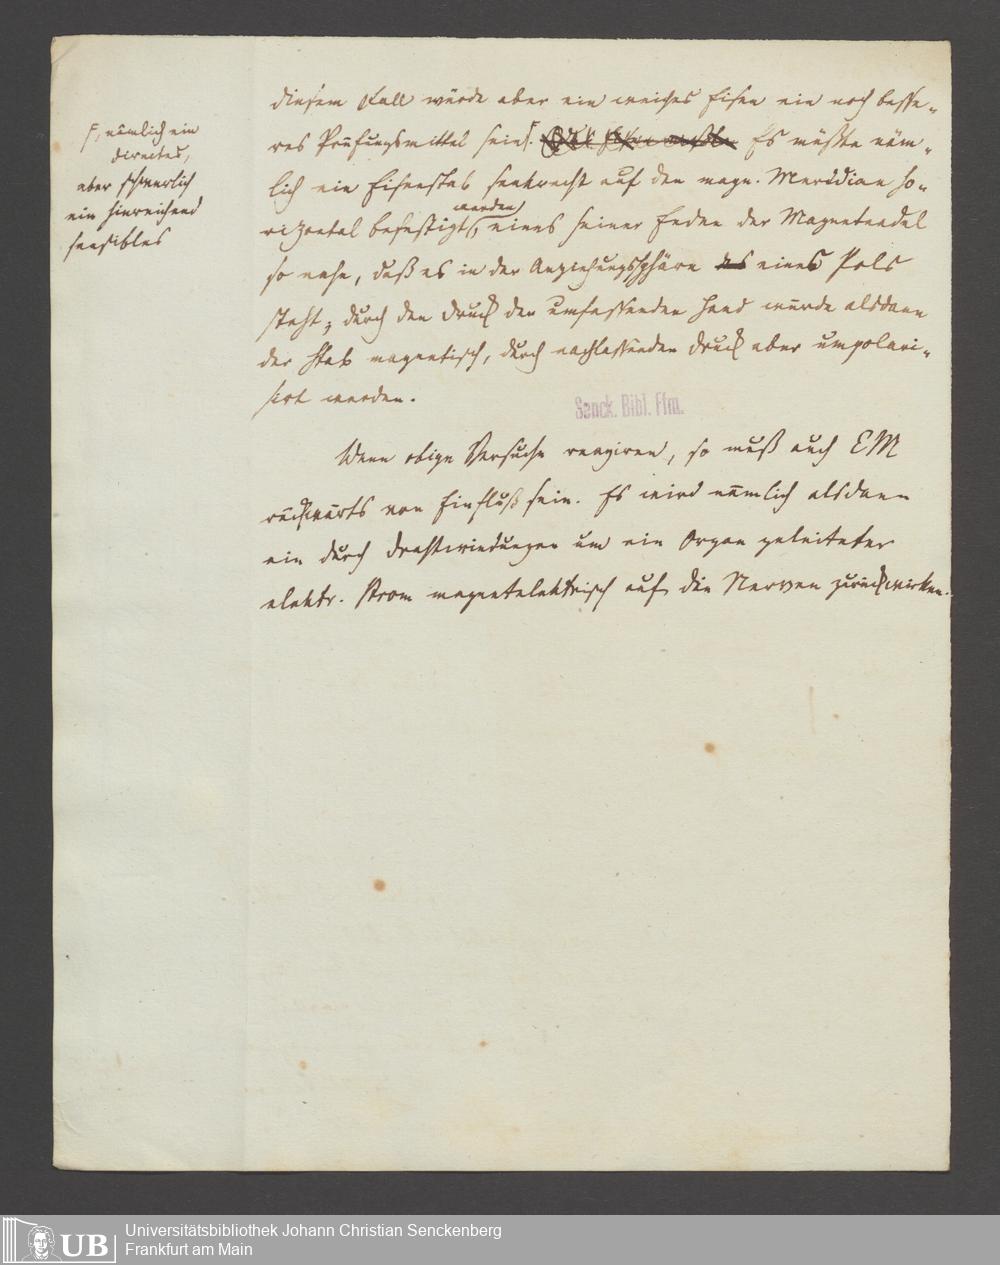 F, nämlich ein
directes,
aber schwerlich
ein hinreichend
sensibles
diesem Fall würde aber ein weiches Eisen ein noch besse-
res Prüfungsmittel sein F. Es müßte näm-
lich ein Eisenstab senkrecht auf den magn. Meridian ho-
rizontal befestigt werden, eines seiner Enden der Magnetnadel
so nahe, daß es in der Anziehungssphäre eines Pols
steht; durch den Druck der umfassenden Hand würde alsdann
der Stab magnetisch, durch nachlassenden Druck aber umpolari-
sirt werden.
Senck. Bibl. Ffm.
Wenn obige Versuche reagiren, so muß auch EM
rückwärts von Einfluß sein. Es wird nämlich alsdann
ein durch Drathwindungen um ein Organ geleiteter
elektr. Strom magnetelektrisch auf die Nerven zurückwirken.
UB
Universitätsbibliothek Johann Christian Senckenberg
Frankfurt am Main